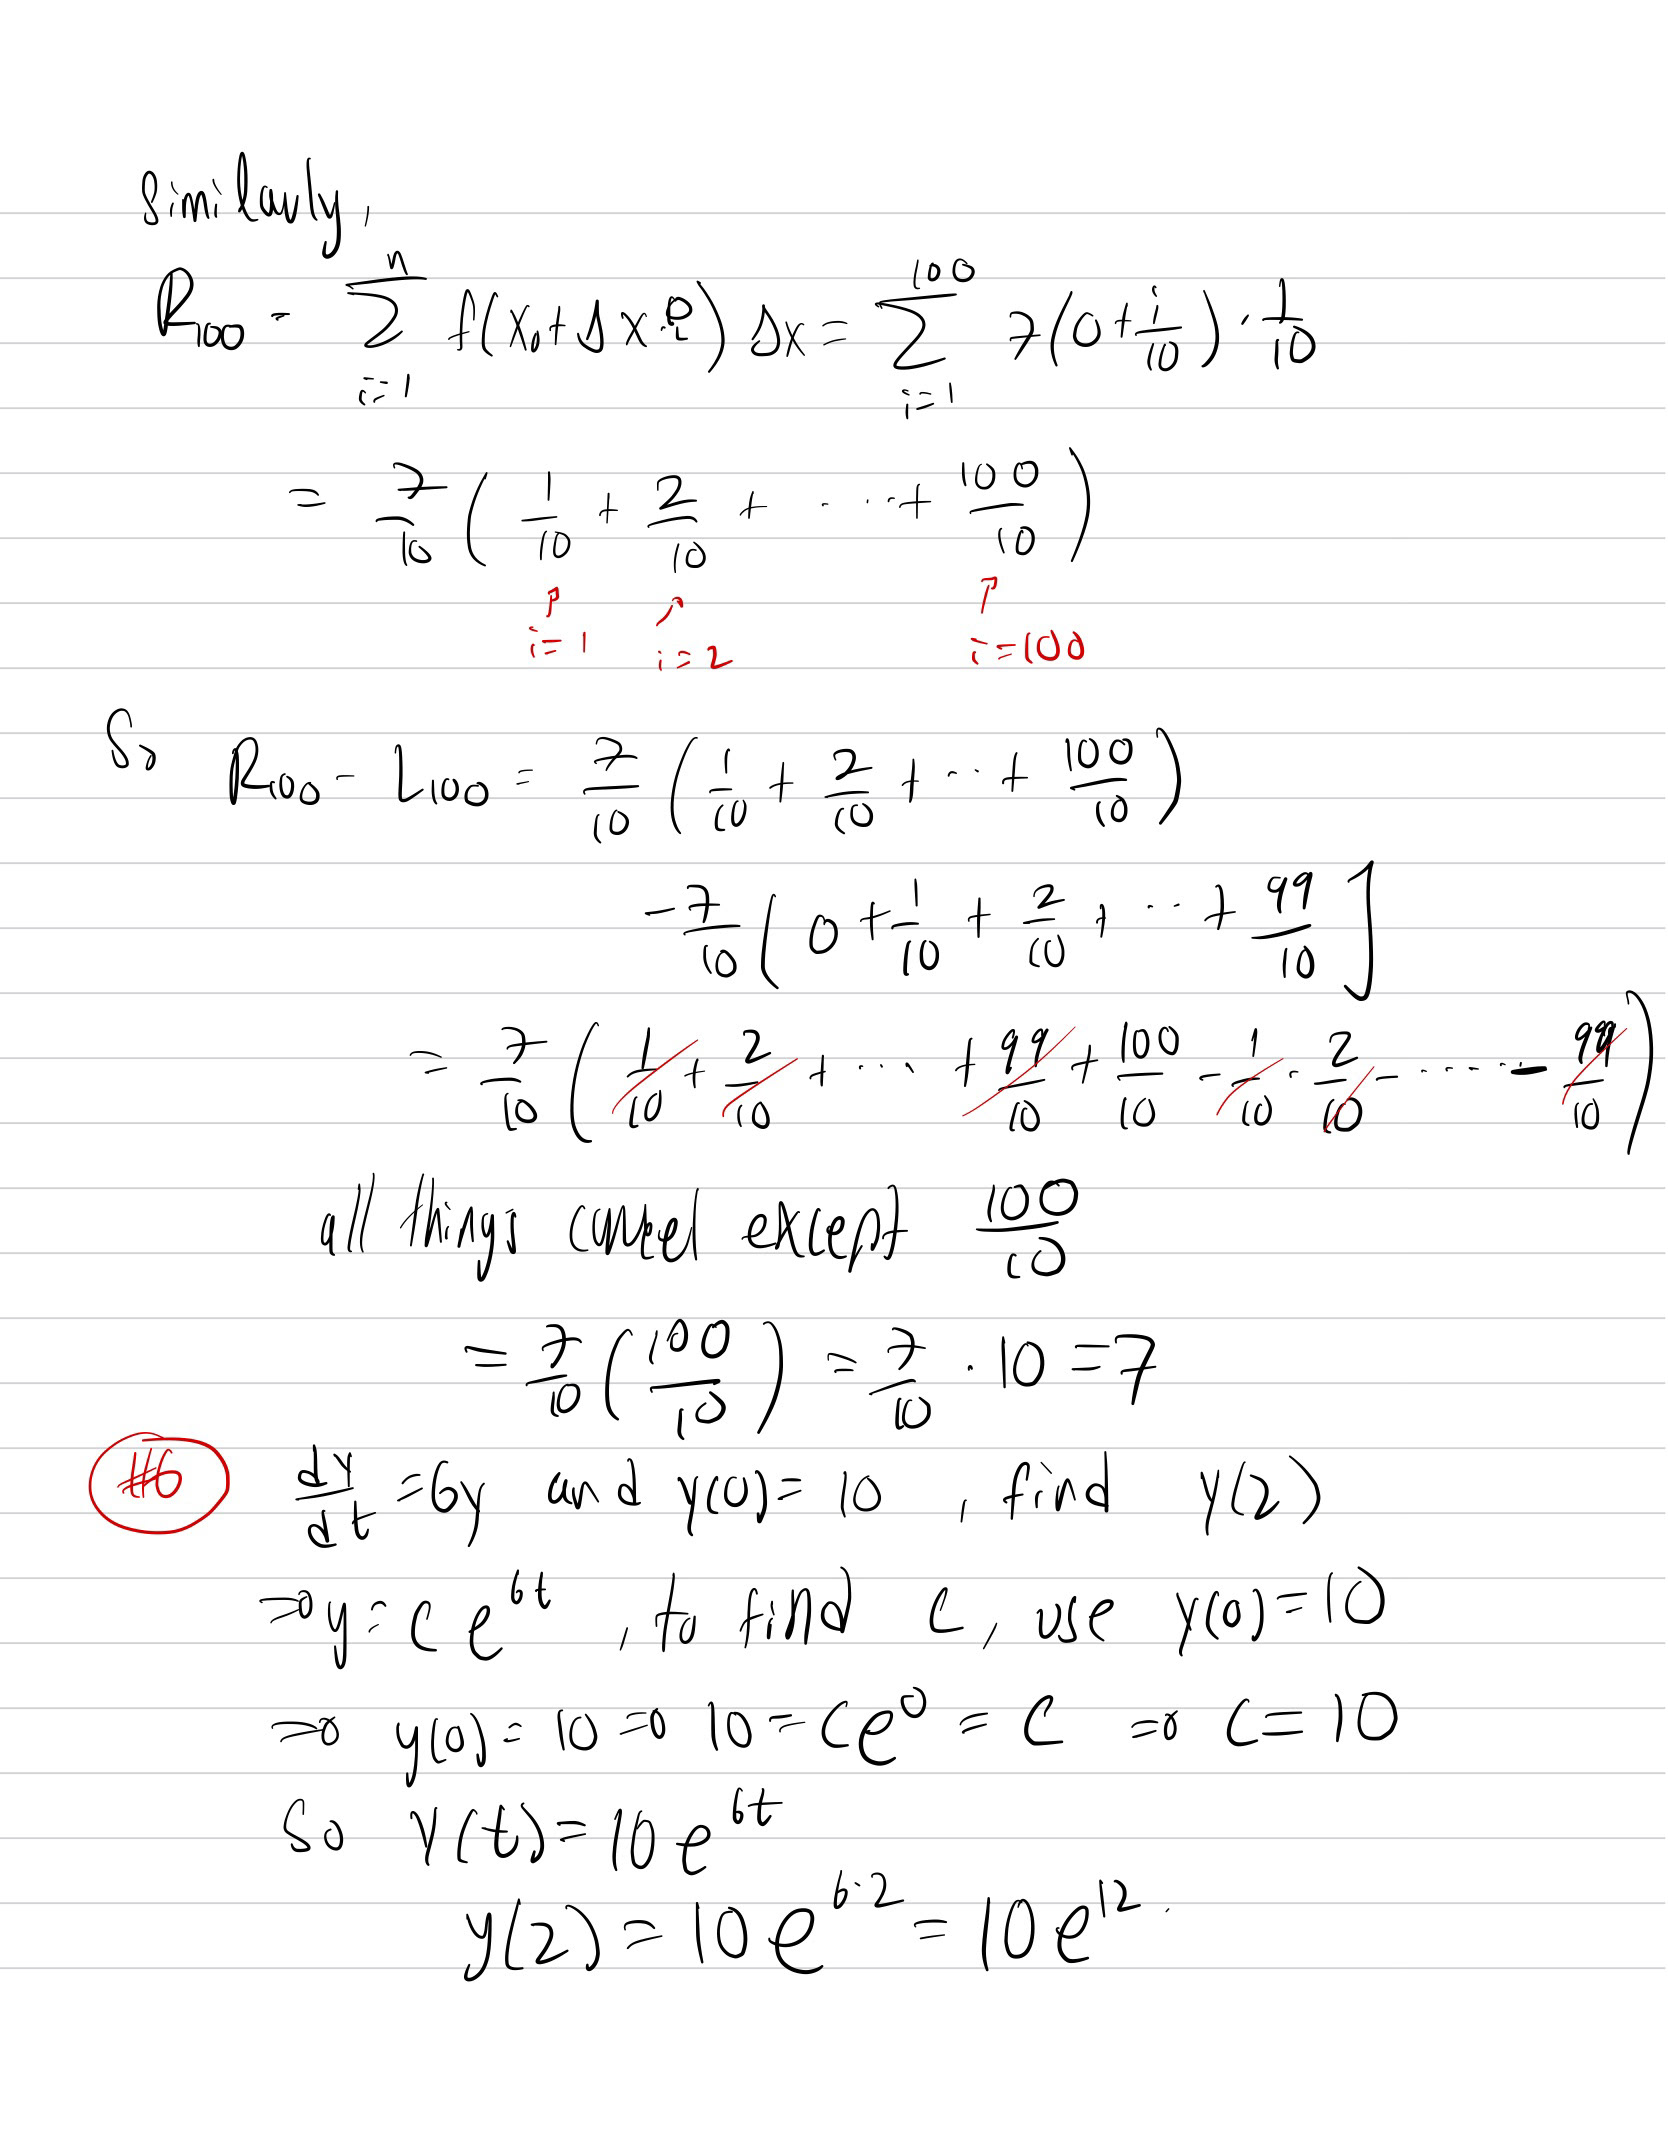 Similarly,
R₁₀₀ = Σ_{i=1}^{n} f(x₀+Δx·i) Δx = Σ_{i=1}^{100} 7(0+i/10)·1/10
= 7/10 ( 1/10 + 2/10 + ····+ 100/10 )
↑ i=1 ↗ i=2 ↑ i=100
So R₁₀₀ - L₁₀₀ = 7/10 ( 1/10 + 2/10 + ··· + 100/10 )
- 7/10 ( 0 + 1/10 + 2/10 + ··· + 99/10 ]
= 7/10 ( 1/10 + 2/10 + ··· + 99/10 + 100/10 - 1/10 - 2/10 - ····· - 99/10 )
all things cancel except 100/10
= 7/10 ( 100/10 ) = 7/10 · 10 = 7
#6 dy/dt = 6y and y(0) = 10 , find y(2)
⇒ y = c e^{6t} , to find c, use y(0) = 10
⇒ y(0) = 10 ⇒ 10 = ce⁰ = c ⇒ c = 10
So y(t) = 10 e^{6t}
y(2) = 10 e^{6·2} = 10 e^{12}.